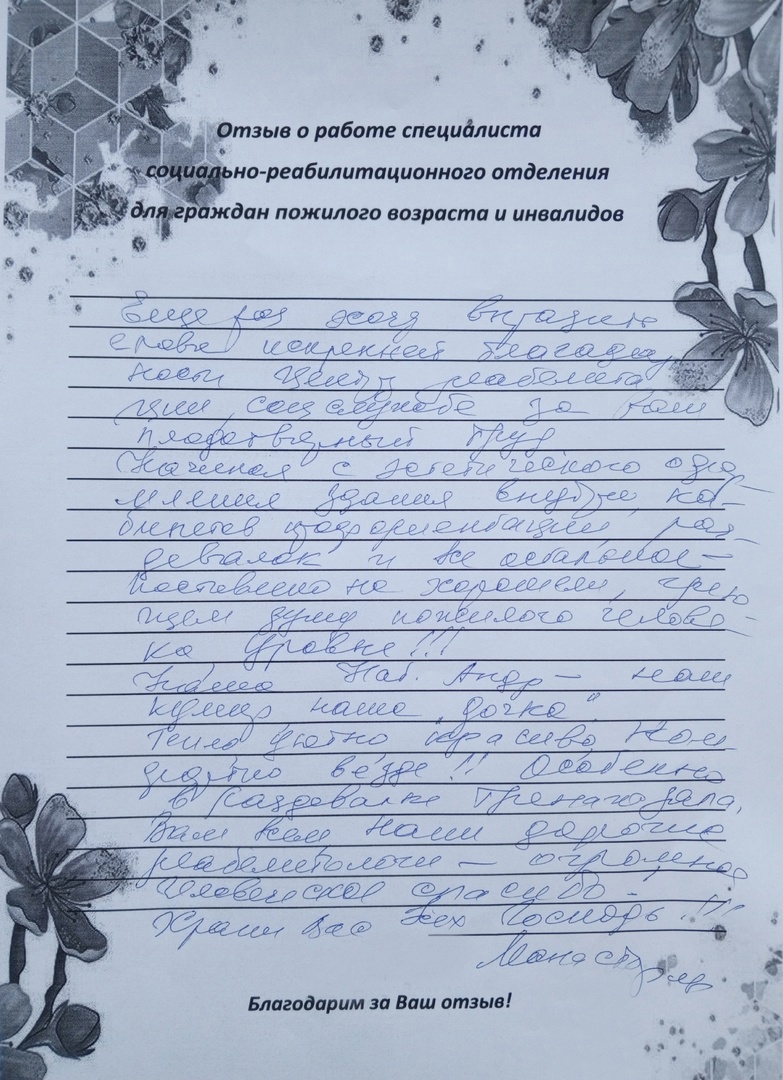 Отзыв о работе специалиста
социально-реабилитационного отделения
для граждан пожилого возраста и инвалидов
Еще раз хочу выразить
слова искренней благодар
ности Центру реабелита
ции, соцслужбе за Ваш
плодотворный труд
Начиная с эстетического офор
мления здания внутри, ка-
бинетов цветоориентации, раз-
девалок и все остальное -
поставлено на хорошем, грею
щем душу пожилого челове-
ка уровне!!!
Наша Нат. Андр - наш
кумир наша "дочка".
Тепло уютно красиво, Ком
фортно везде!! Особенно
в раздевалке тренаж. зала.
Вам всем наши дорогие
реабелитологи - огромное
человеческое спасибо -
Храни Вас всех Господь!!!
Благодарим за Ваш отзыв!